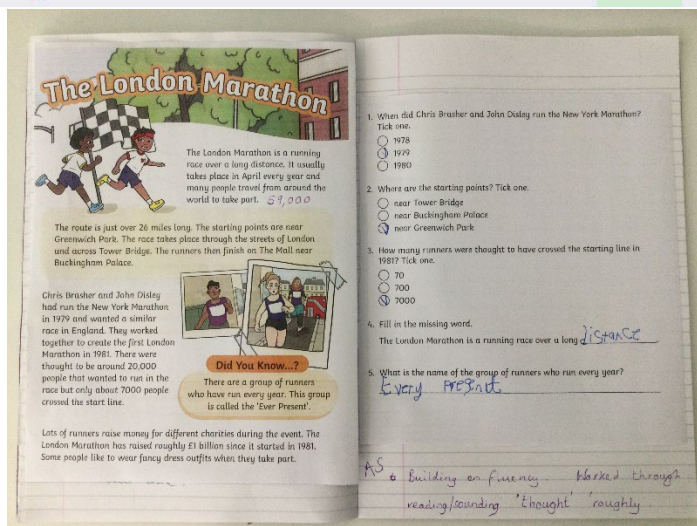 The London Marathon
The London Marathon is a running
race over a long distance. It usually
takes place in April every year and
many people travel from around the
world to take part. 59,000
The route is just over 26 miles long. The starting points are near
Greenwich Park. The race takes place through the streets of London
and across Tower Bridge. The runners then finish on The Mall near
Buckingham Palace.
Chris Brasher and John Disley
had run the New York Marathon
in 1979 and wanted a similar
race in England. They worked
together to create the first London
Marathon in 1981. There were
thought to be around 20,000
people that wanted to run in the
race but only about 7000 people
crossed the start line.
Did You Know...?
There are a group of runners
who have run every year. This group
is called the 'Ever Present'.
Lots of runners raise money for different charities during the event. The
London Marathon has raised roughly £1 billion since it started in 1981.
Some people like to wear fancy dress outfits when they take part.
1. When did Chris Brasher and John Disley run the New York Marathon?
Tick one.
1978
1979
1980
2. Where are the starting points? Tick one.
near Tower Bridge
near Buckingham Palace
near Greenwich Park
3. How many runners were thought to have crossed the starting line in
1981? Tick one.
70
700
7000
4. Fill in the missing word.
The London Marathon is a running race over a long distance
5. What is the name of the group of runners who run every year?
Every Present
AS Building on fluency. Worked through
reading/sounding 'thought' 'roughly